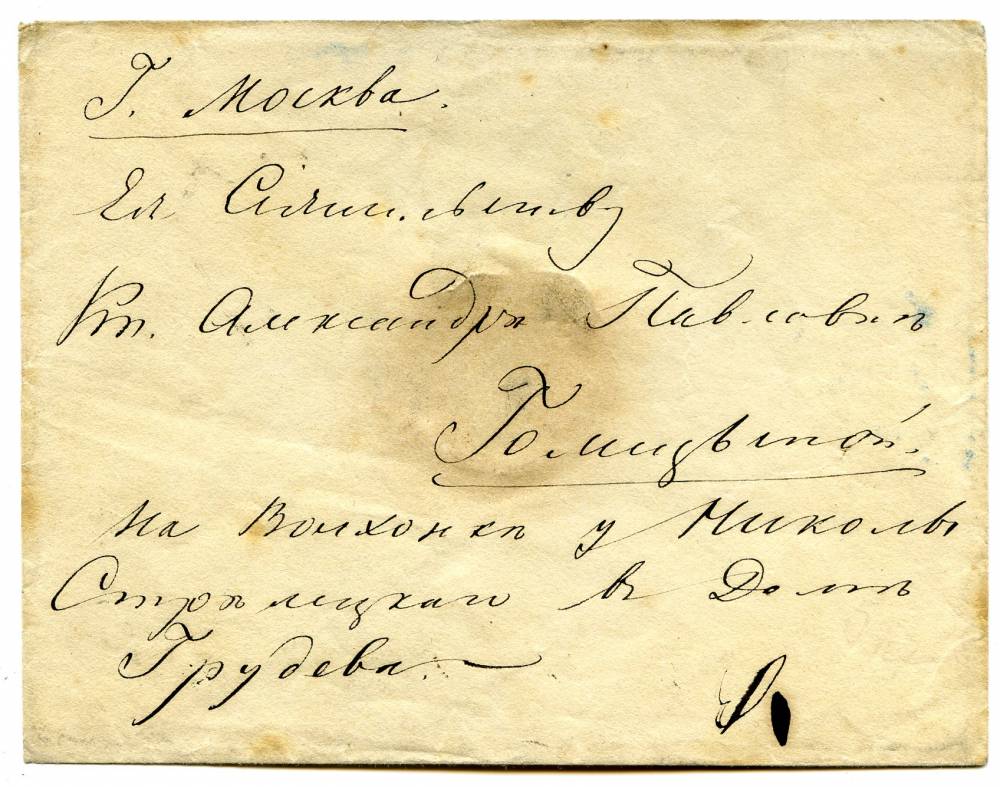 Г. Москва.
Ея Сіятельству
Кн. Александрѣ Павловнѣ
Голицыной.
На Волхонкѣ у Николы
Стрѣлецкаго въ Домѣ
Грудева.